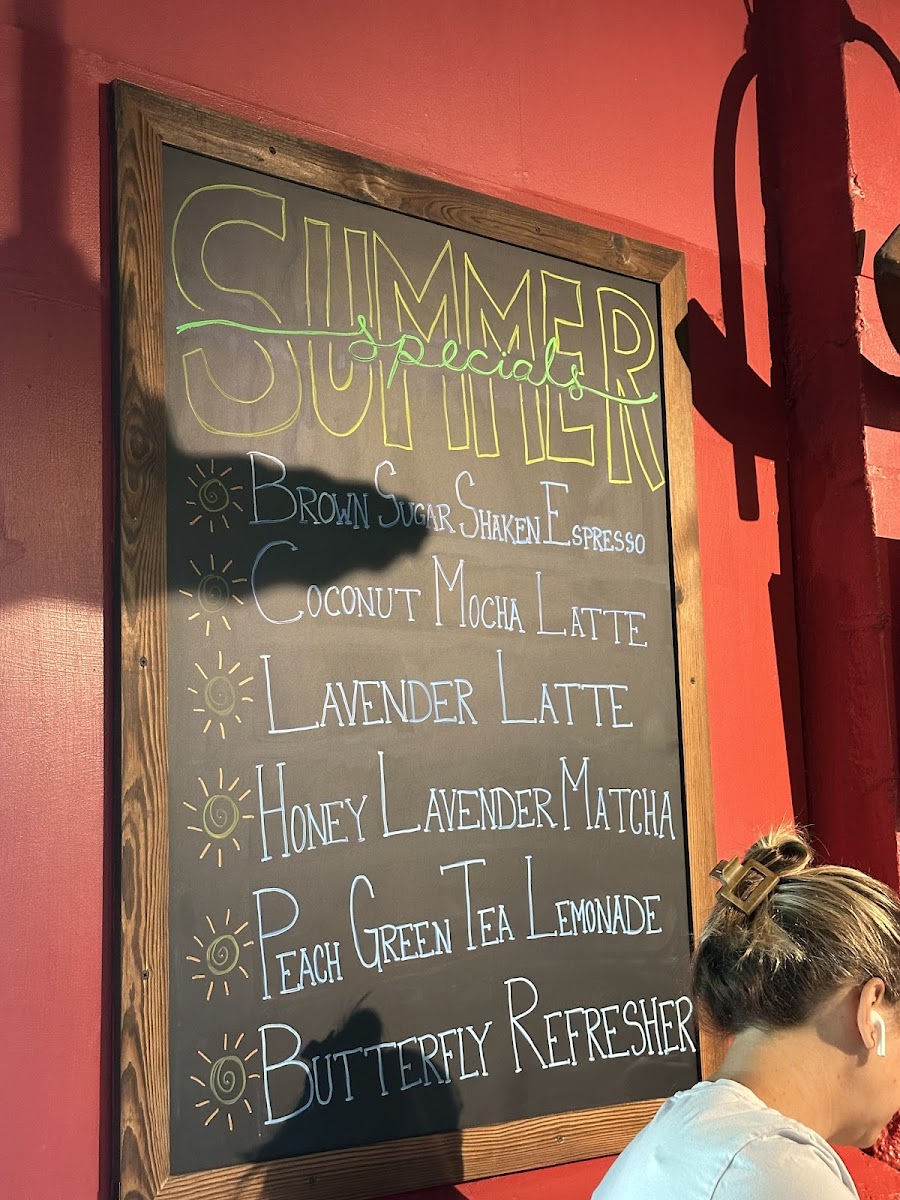 SUMMER
specials
BROWN SUGAR SHAKEN ESPRESSO
COCONUT MOCHA LATTE
LAVENDER LATTE
HONEY LAVENDER MATCHA
PEACH GREEN TEA LEMONADE
BUTTERFLY REFRESHER